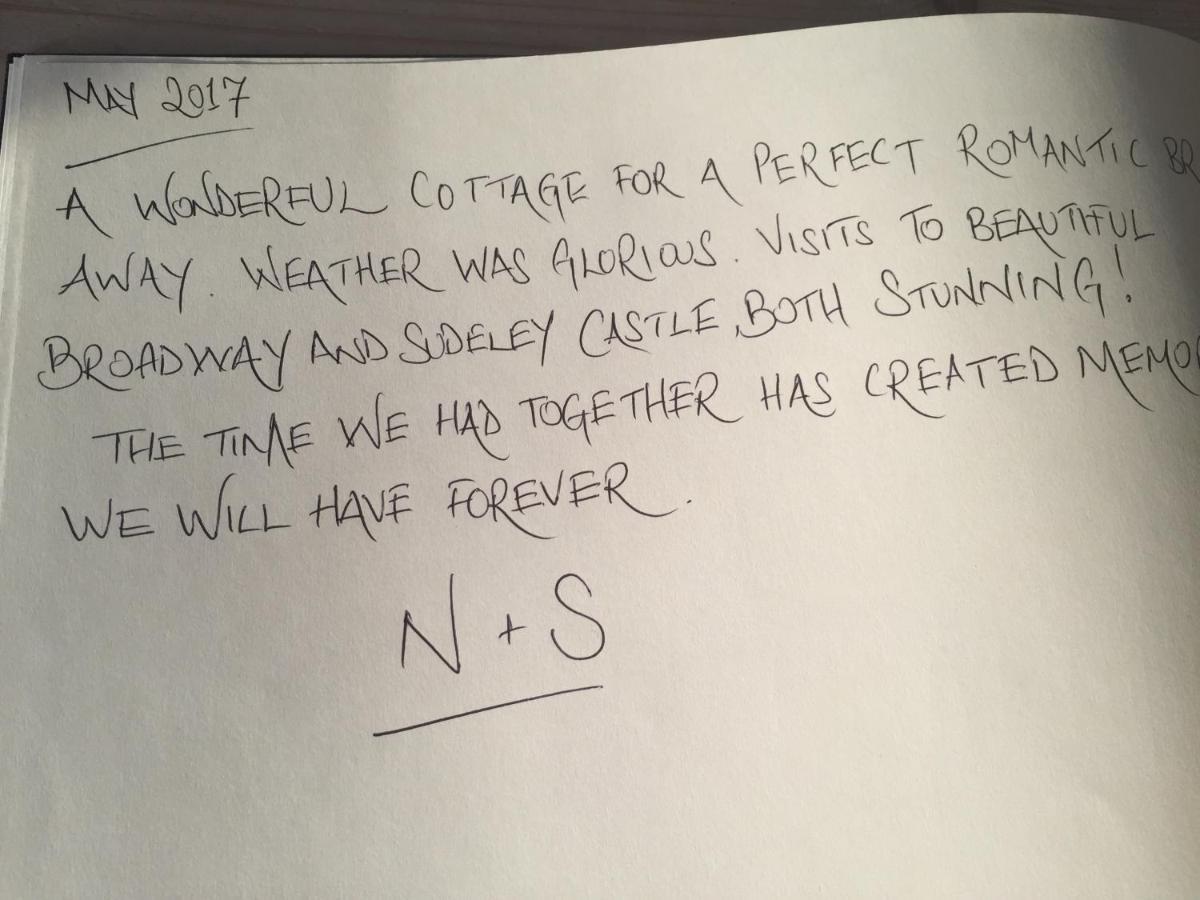 MAY 2017
A WONDERFUL COTTAGE FOR A PERFECT ROMANTIC BR
AWAY. WEATHER WAS GLORIOUS. VISITS TO BEAUTIFUL
BROADWAY AND SUDELEY CASTLE, BOTH STUNNING!
THE TIME WE HAD TOGETHER HAS CREATED MEMO
WE WILL HAVE FOREVER.
N + S